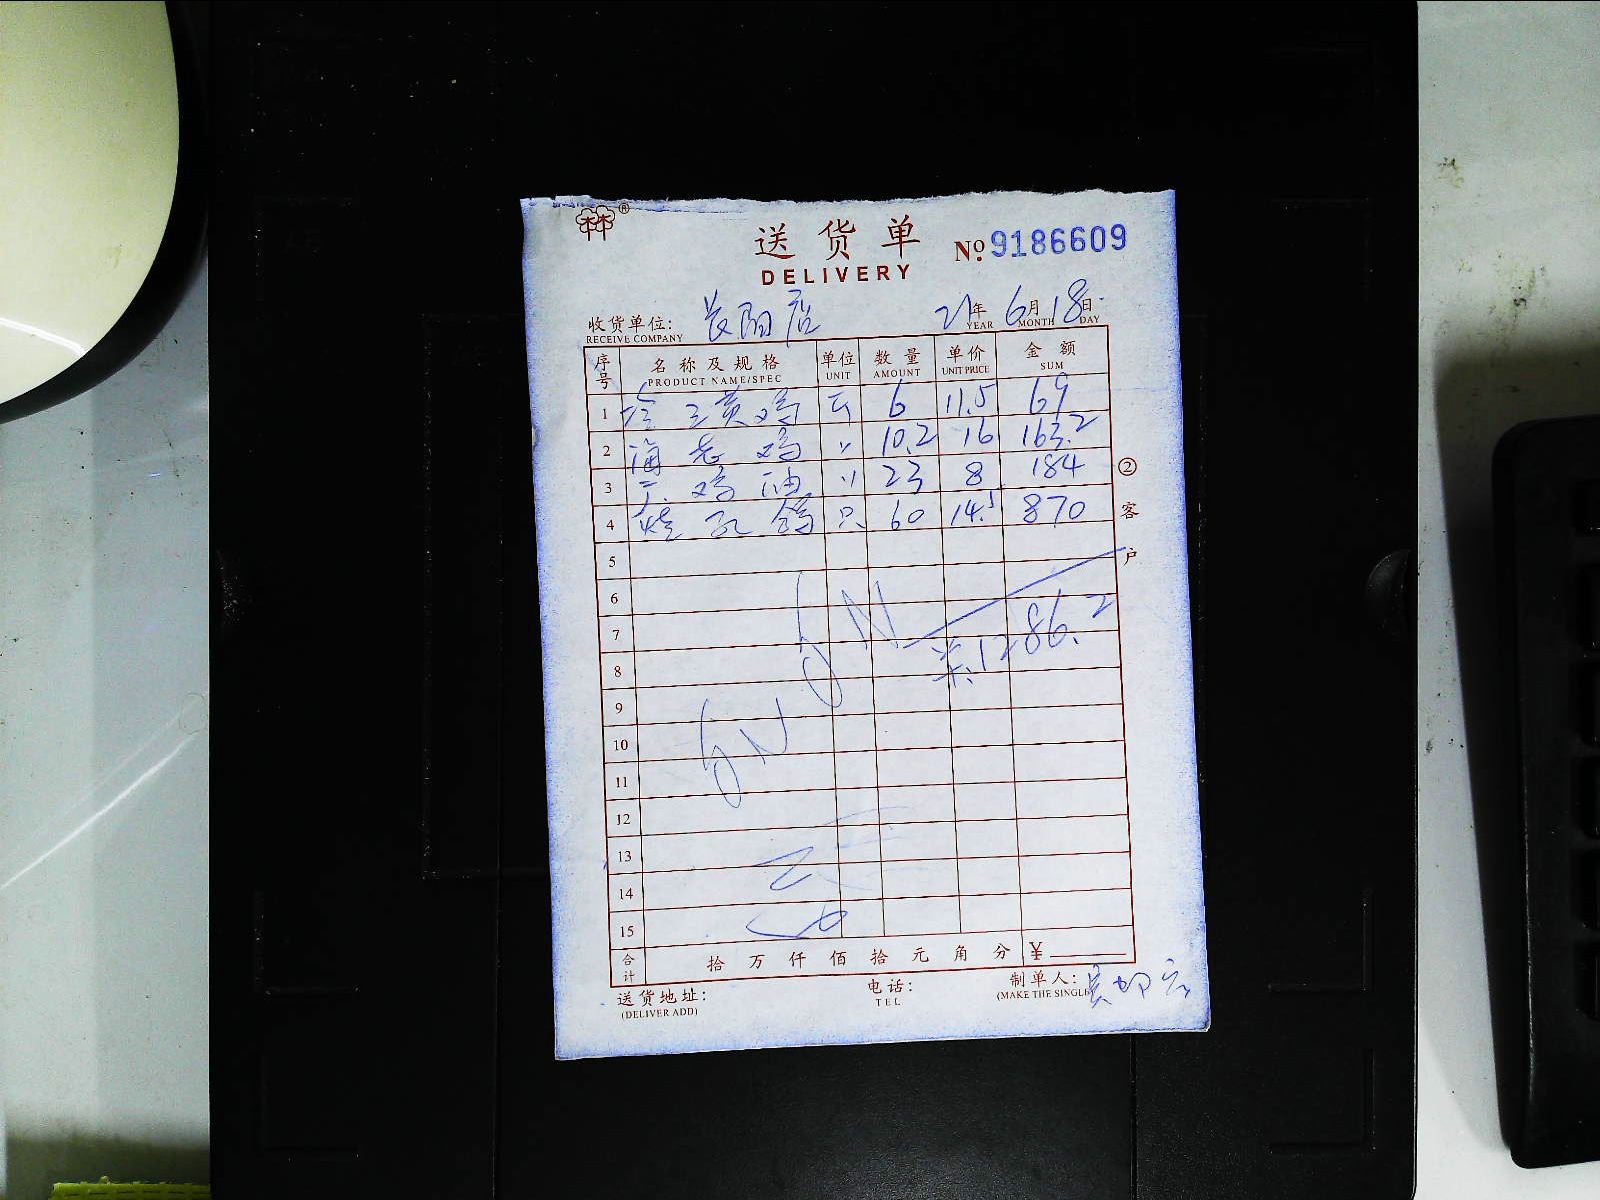 林林®
送货单
DELIVERY
No. 9186609
收货单位: 长阳店 21年 6月 18日
RECEIVE COMPANY YEAR MONTH DAY
序号 名称及规格 单位 数量 单价 金额
PRODUCT NAME/SPEC UNIT AMOUNT UNIT PRICE SUM
1 冷 三黄鸡 斤 6 11.5 69
2 海 老 鸡 〃 10.2 16 163.2
3 鸡 油 〃 23 8 184
4 烧 乳 鸽 只 60 14.5 870
5
6
7
共.1286.2
8
9
10
11
12
13
14
15
合计 拾 万 仟 佰 拾 元 角 分 ¥
②客户
送货地址: 电话: 制单人:
(DELIVER ADD) TEL (MAKE THE SINGLE